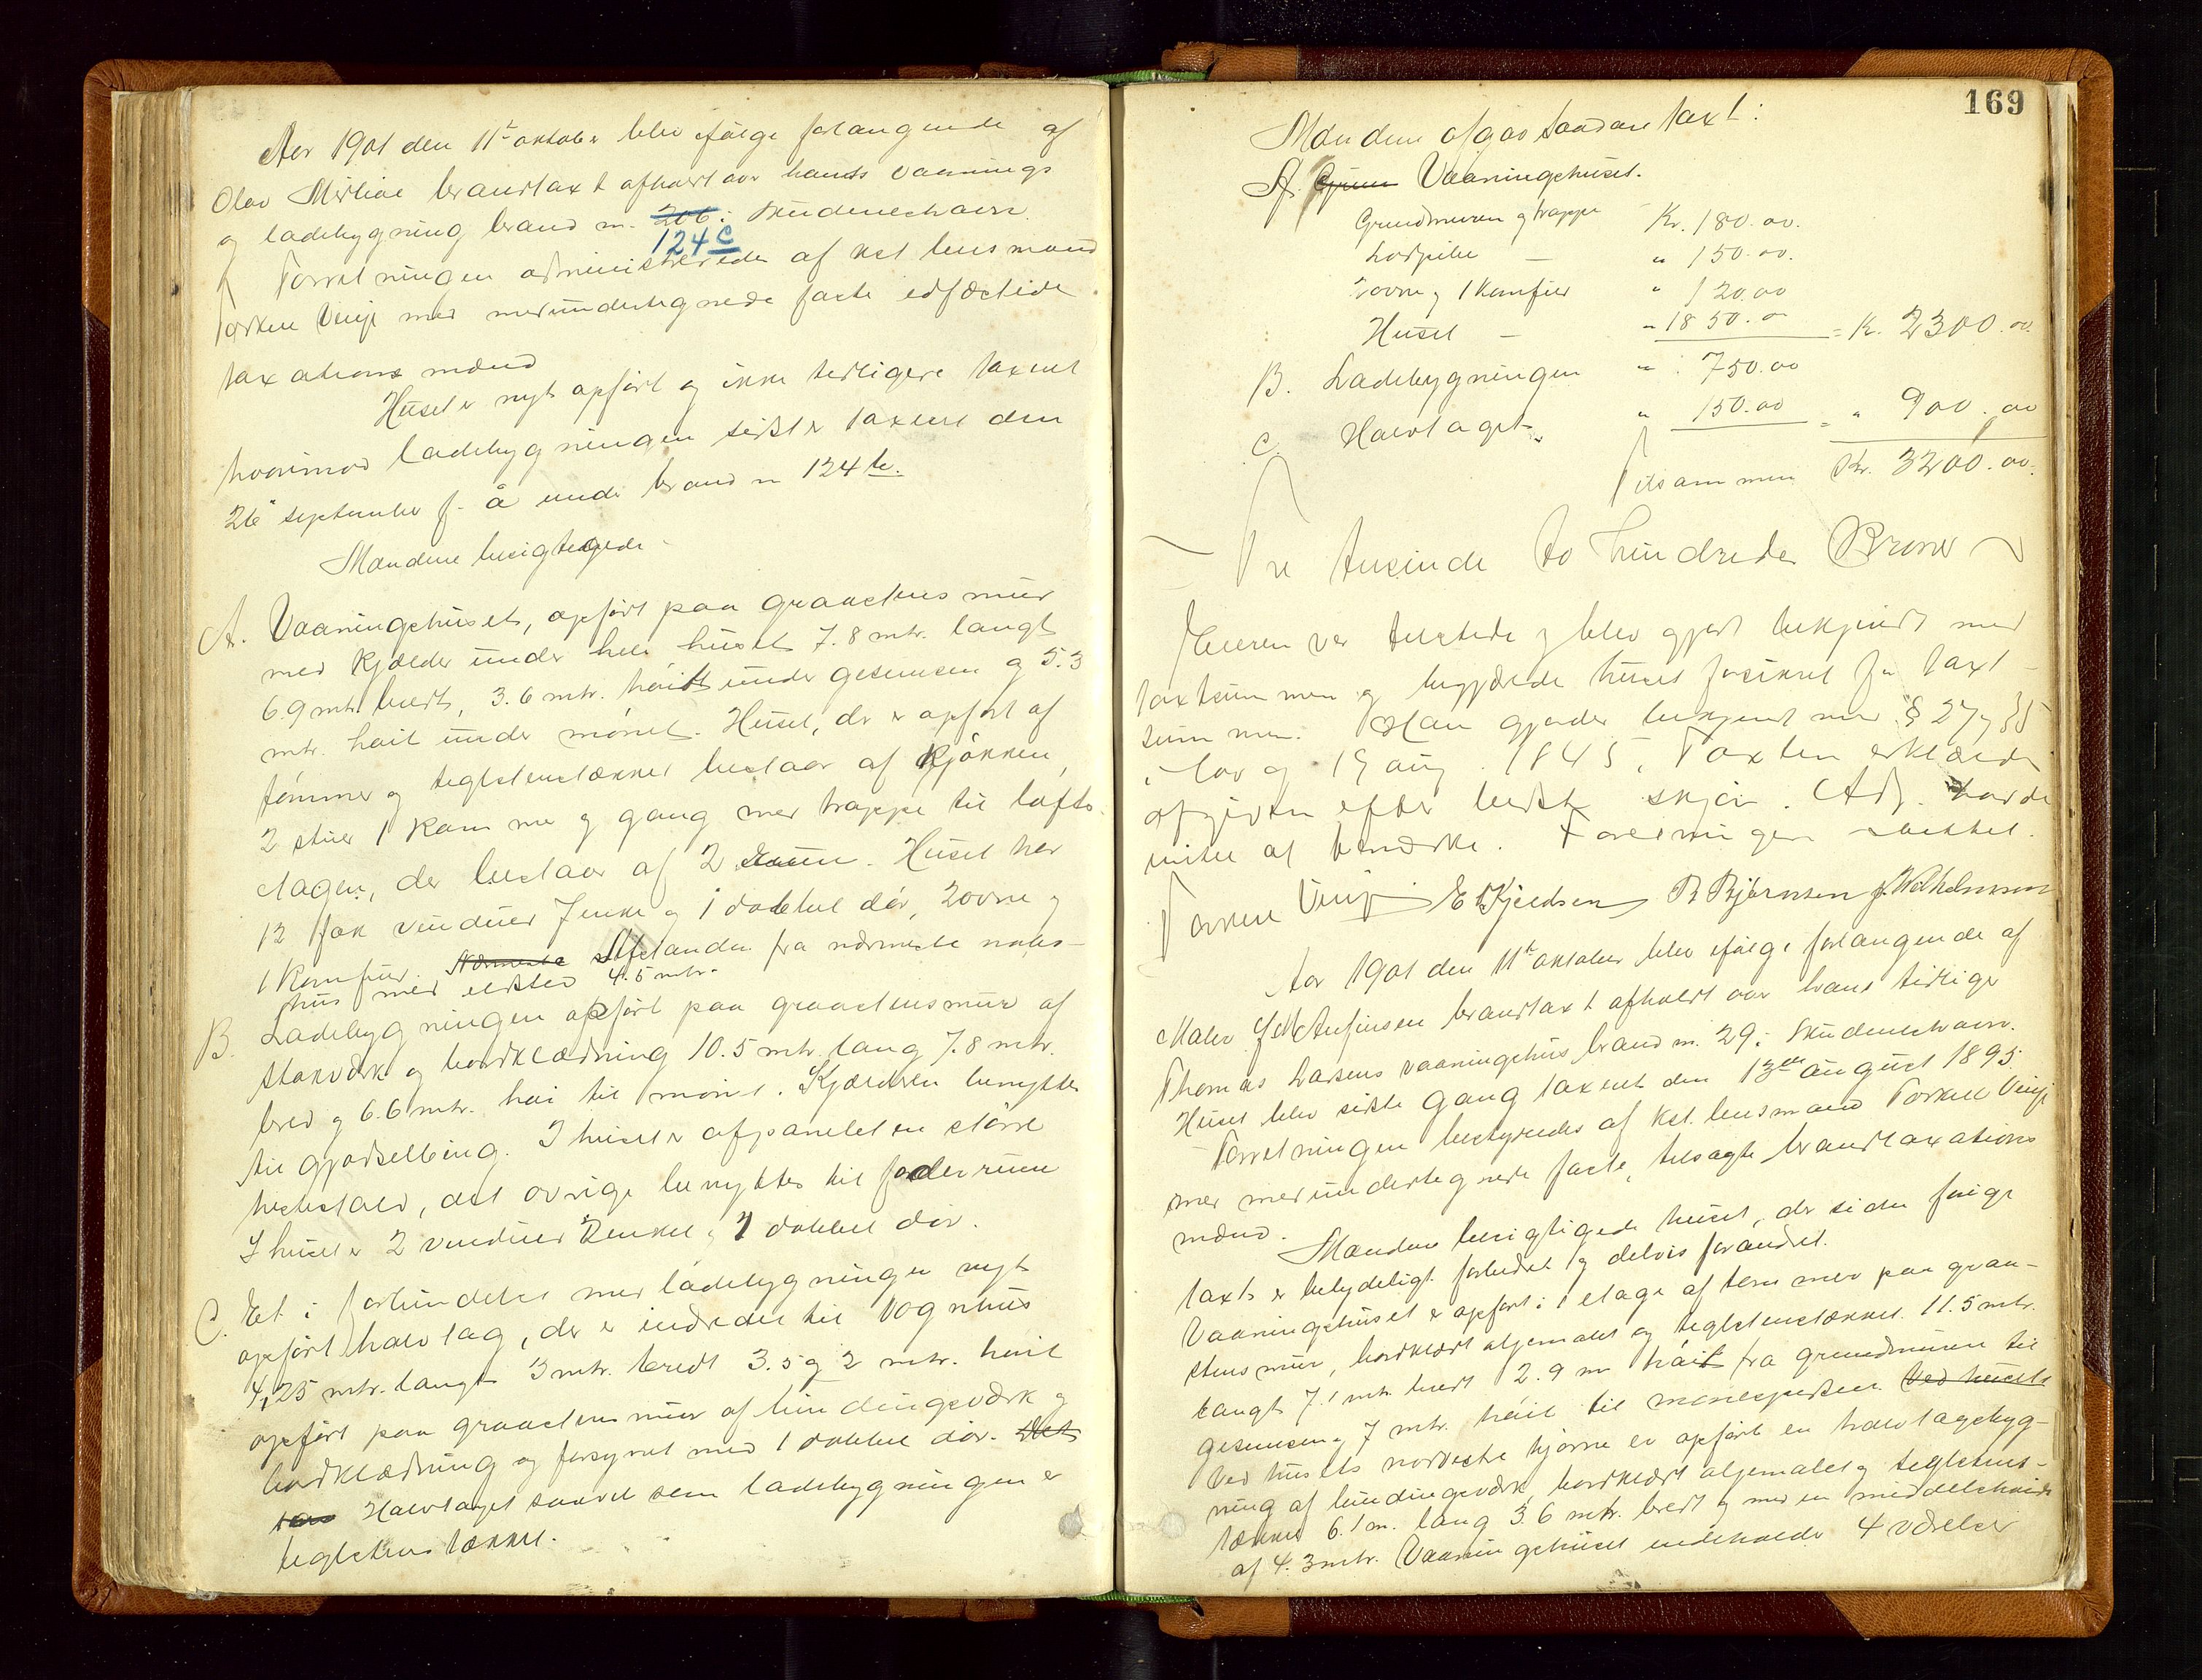 Aar 1901 den 11te oktober blev ifølge forlangende af
Olav Mistiae brandtaxt afholdt over hans vaanings
og ladebygning brand nr. 206 i Skudeneshavn.
124 c
Forretningen administreredes af kst lensmand
Torkell Vinje med medundertegnede faste edfæstede
taxations mænd
Huset er nyt opført og ikke tidligere taxeret
hvorimod ladebygningen sidst er taxeret den
26 september f. å under brand nr 124 b.
Mændene besigtegede
A. Vaaningshuset, opført paa graastens mur
med Kjælder under hele huset 7.8 mtr. langt
6.9 mtr bredt, 3.6 mtr. høit under gesimsen og 5.3
mtr. høit under mønet. Huset, der er opført af
tømmer og teglstenstækket bestaar af Kjøkken,
2 stuer 1 kammer og gang med trappe til lofts
etagen, der bestaar af 2 rum. Huset har
12 fag vinduer 7 enkle og 1 dobbel dør, 2 ovne og
1 Komfur. Nærmeste Afstanden fra nærmeste nabo-
hus med ildsted 4.5 mtr.
B. Ladebygningen opført paa graastensmur af
stavværk og bordklædning 10.5 mtr. lang 7.8 mtr.
bred og 6.6 mtr. høi til mønet. Kjælderen benyttes
til gjødselbing. I huset er afpanelet en større
hestestald, det øvrige benyttes til foderrum
I huset er 2 vinduer 2 enkel og 1 dobbel dør.
C. Et i forbindelse med ladebygningen nyt
opført halvtag, der er indredet til Vognhus
4,25 mtr. langt 3 mtr. bredt 3.5 og 2 mtr. høit
opført paa graastens mur af bindingsværk og
bordklædning og forsynet med 1 dobbel dør. Det
Halvtaget saavel som ladebygningen er
teglstenstækket.
169
Mændene afgav saadan taxt:
A. Grun Vaaningshuset.
Grundmuren og trappe Kr. 180.00.
Lodpibe — " 150.00.
2 ovne og 1 Komfur " 120.00
Huset — " 1850.00 = Kr. 2300.00
B. Ladebygningen " 750.00
C. Halvtaget " 150.00 = " 900.00
Tilsammen Kr. 3200.00.
Tre tusinde to hundrede Kroner
Eieren var tilstede og blev gjort bekjendt med
taxtsummen og begjærede huset forsikret for taxt-
summen. Han gjordes bekjendt med § 27 og 35
i lov af 19 aug. 1845. Taxten erklæredes
afgiven efter bedste skjøn. Adj. havde
intet at bemærke. Foretningen sluttet.
Torkell Vinje E Kjeldsen B Bjørnsen J. Wilhelmsen
Aar 1901 den 11te oktober blev ifølge forlangende af
Maler J M Anfinsen brandtaxt afholdt over hans tidlige
Thomas Larsens vaaningshus brand nr. 29 i Skudeneshavn.
Huset blev sidste gang taxeret den 13de august 1895.
Forretningen bestyredes af kst. lensmand Torkell Vinje
med medundertegnede faste, tilsagte brandtaxations
mænd.
Mændene besigtigede huset, der siden forige
taxt er betydeligt forbedret og delvis forandret.
Vaaningshuset er opført i 1 etage af tømmer paa graa-
stens mur, bordklædt oljemalet og teglstenstækket. 11.5 mtr.
langt 7.1 mtr. bredt 2.9 m høit fra grundmuren til
gesimsen og 7 mtr. høit til mønespidsen. Ved husets
Ved husets nordøste hjørne er opført en halvtagsbyg-
ning af bindingsværk, bordklædt oljemalet og teglstens-
tækket 6.1 m. lang 3.6 mtr. bredt og med en middelshøide
af 4.3 mtr. Vaaningshuset indeholder 4 værelser